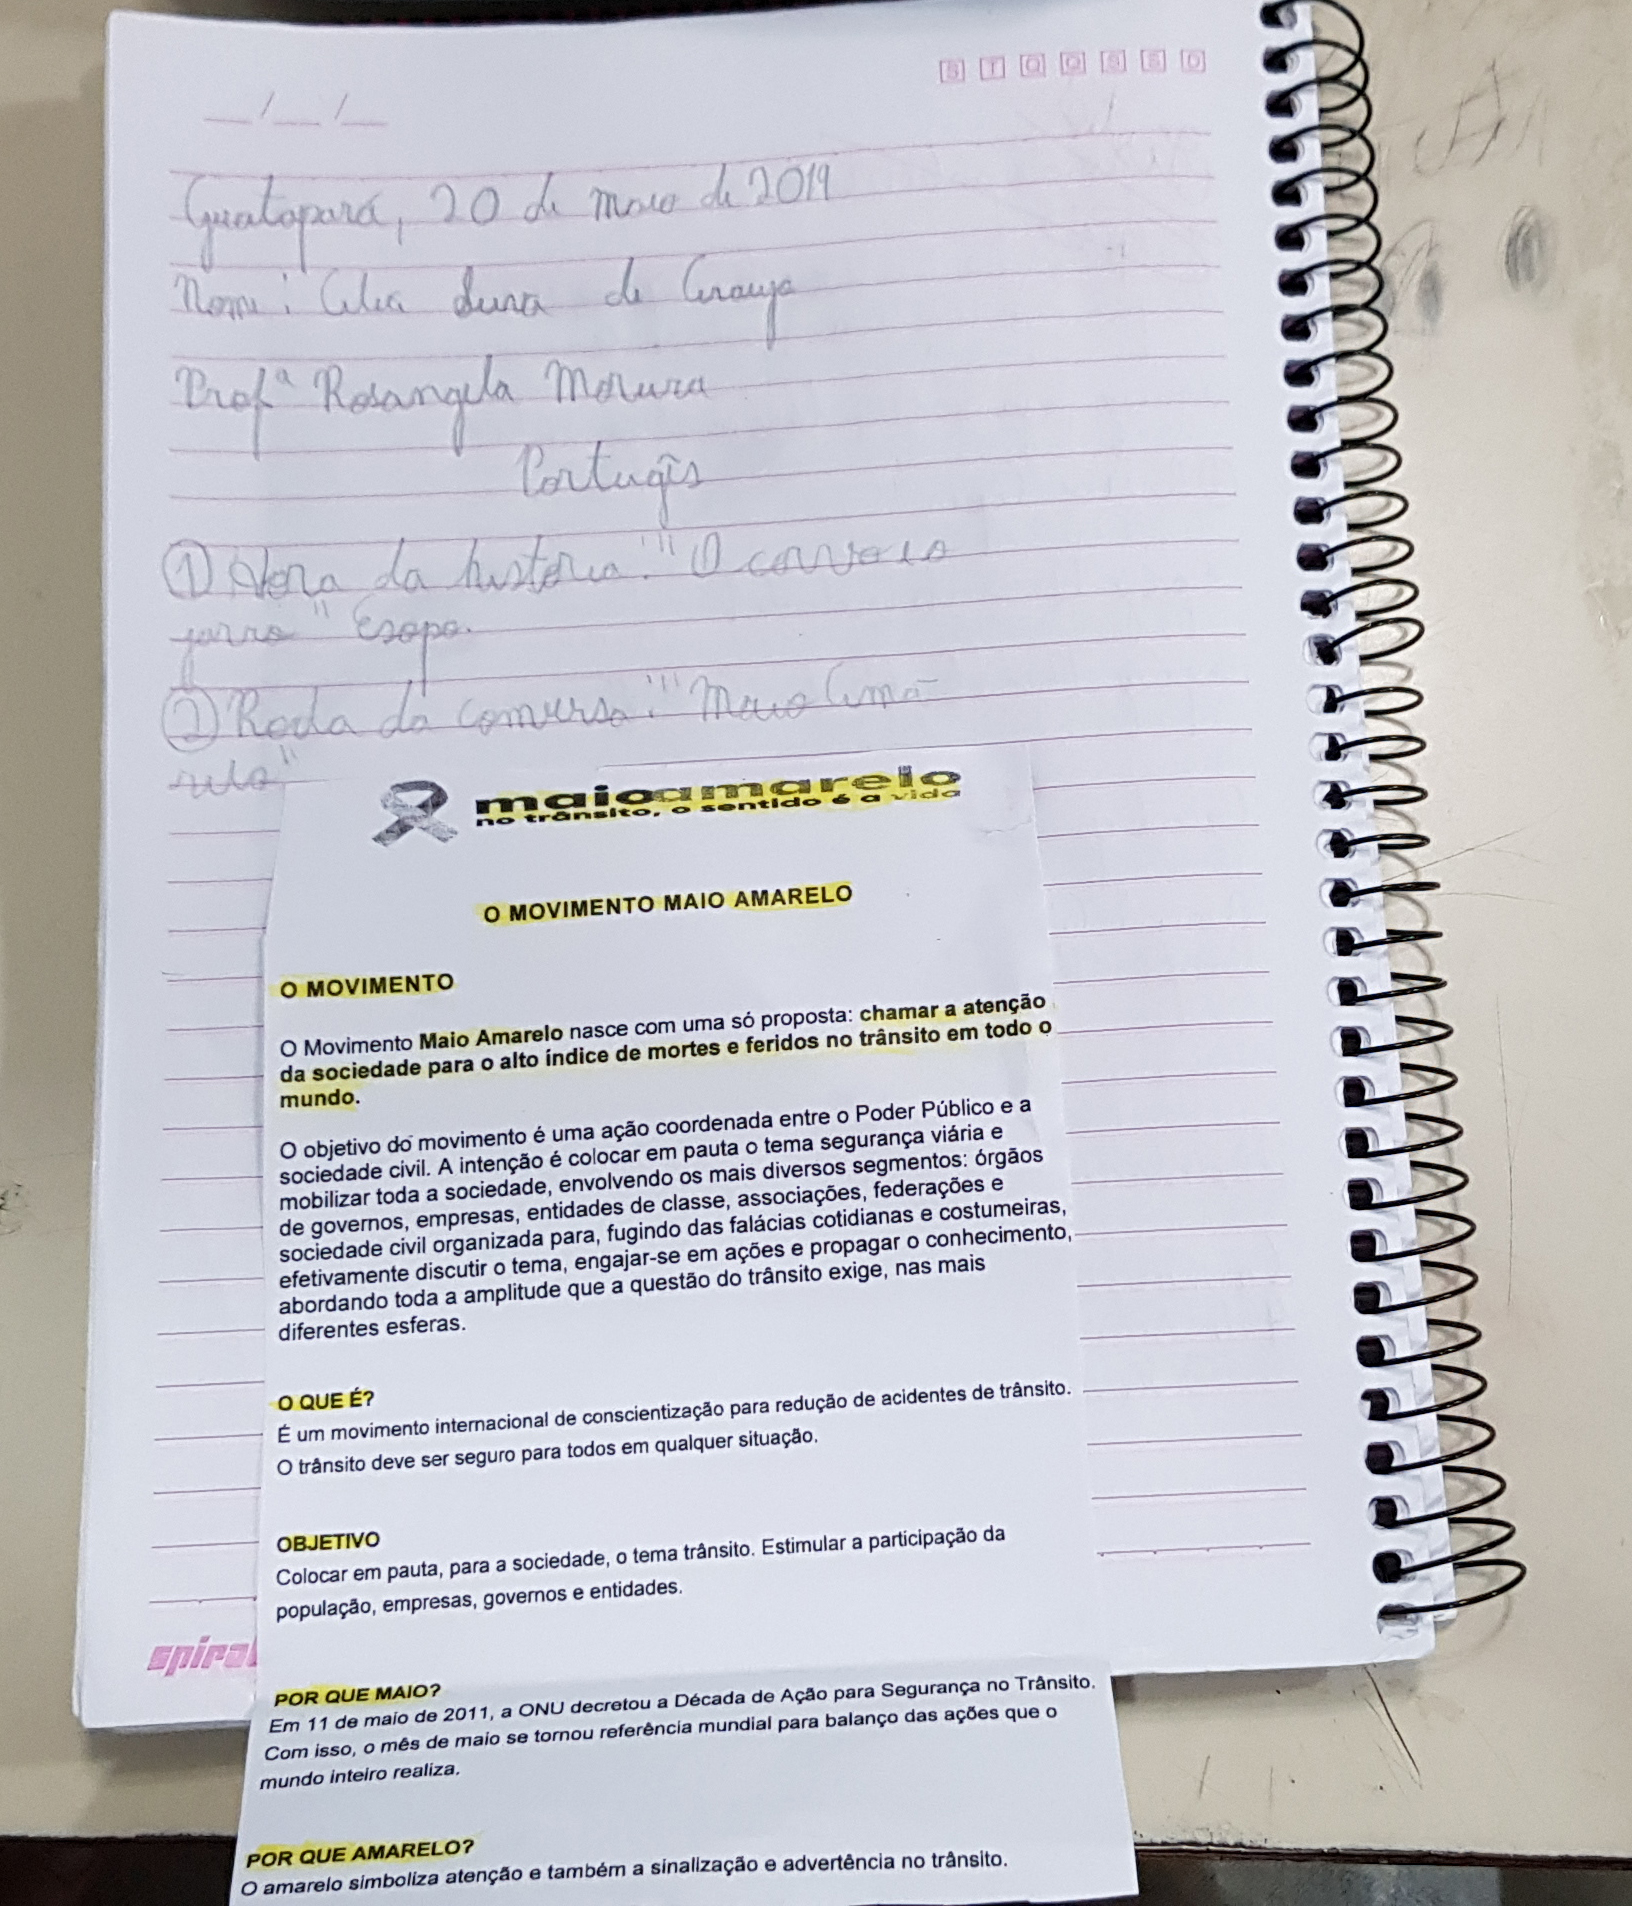 S T Q Q S S D
__/__/__
Guatapará, 20 de maio de 2019
Nome: Celia de Araujo
Profª Rosangela Moura
Portugês
① Hora da história: "O corvo e o
jarro" Esopo.
② Roda da conversa: "Maio Ama-
relo"
maioamarelo
no trânsito, o sentido é a vida
O MOVIMENTO MAIO AMARELO
O MOVIMENTO
O Movimento Maio Amarelo nasce com uma só proposta: chamar a atenção
da sociedade para o alto índice de mortes e feridos no trânsito em todo o
mundo.
O objetivo do movimento é uma ação coordenada entre o Poder Público e a
sociedade civil. A intenção é colocar em pauta o tema segurança viária e
mobilizar toda a sociedade, envolvendo os mais diversos segmentos: órgãos
de governos, empresas, entidades de classe, associações, federações e
sociedade civil organizada para, fugindo das falácias cotidianas e costumeiras,
efetivamente discutir o tema, engajar-se em ações e propagar o conhecimento,
abordando toda a amplitude que a questão do trânsito exige, nas mais
diferentes esferas.
O QUE É?
É um movimento internacional de conscientização para redução de acidentes de trânsito.
O trânsito deve ser seguro para todos em qualquer situação.
OBJETIVO
Colocar em pauta, para a sociedade, o tema trânsito. Estimular a participação da
população, empresas, governos e entidades.
spiral
POR QUE MAIO?
Em 11 de maio de 2011, a ONU decretou a Década de Ação para Segurança no Trânsito.
Com isso, o mês de maio se tornou referência mundial para balanço das ações que o
mundo inteiro realiza.
POR QUE AMARELO?
O amarelo simboliza atenção e também a sinalização e advertência no trânsito.